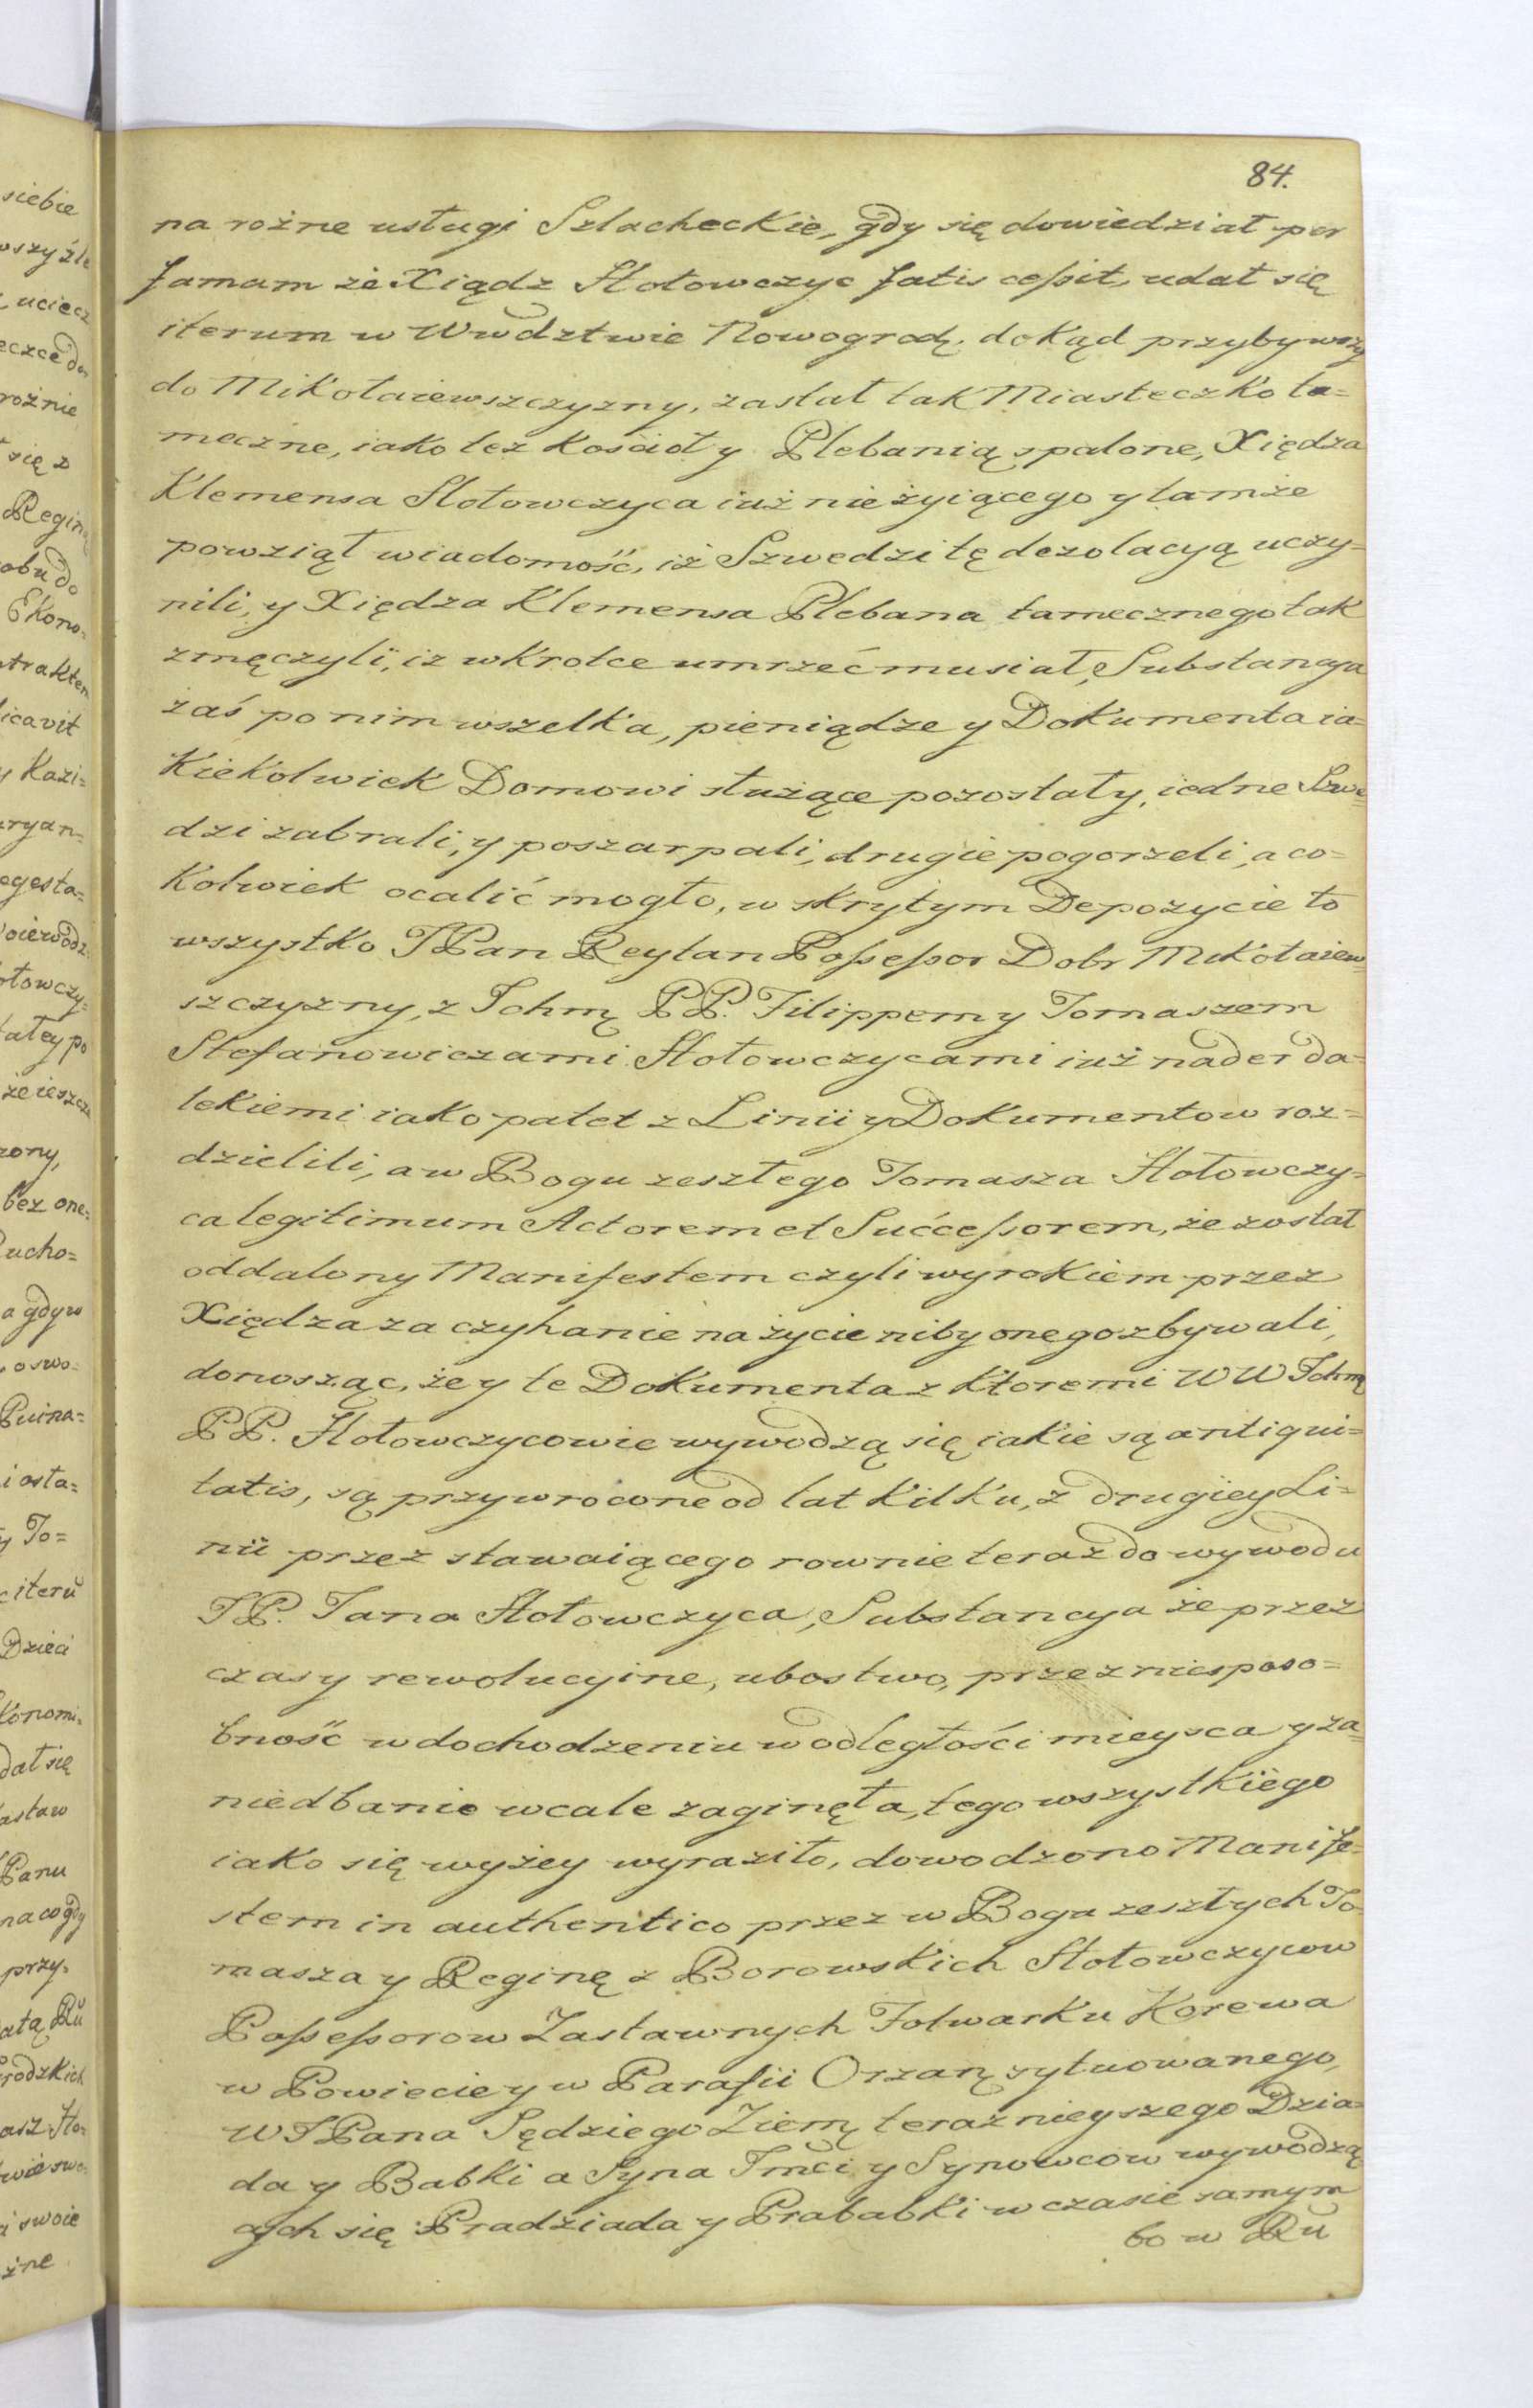 84.
na rożne usługi Szlacheckie, gdy się dowiedział per
famam że Xiądz Hołowczyc fatis cessit, udał się
iterum w Wwdztwie Nowogrodz. dokąd przybywszy
do Mikołaiewszczyzny, zastał tak Miasteczko ta=
meczne, iako też kościoł y Plebanią spalone, Xiędza
Klemensa Hołowczyca iuż nie żyiącego y tamże
powziął wiadomość, iż Szwedzi tę dezolacyą uczy=
nili, y Xiędza Klemensa Plebana tamecznego tak
zmęczyli, iż wkrotce umrzeć musiał, Substancya
zaś po nim wszelka, pieniądze y Dokumenta ia=
kiekolwiek Domowi służące pozostały, iedne Szwe
dzi zabrali, y poszarpali, drugie pogorzeli, a co=
kolwiek ocalić mogło, w skrytym Depozycie to
wszystko JPan Reytan Possessor Dobr Mikołaiew=
szczyzny, z Ichmę PP. Filippem y Tomaszem
Stefanowiczami Hołowczycami iuż nader da=
lekiemi iako patet z Linii y Dokumentow roz=
dzielili, a w Bogu zeszłego Tomasza Hołowczy=
ca legitimum Actorem et Successorem, że został
oddalony Manifestem czyli wyrokiem przez
Xiędza za czyhanie na życie niby onego zbywali,
donosząc, że y te Dokumenta z ktoremi WW Ichmę
PP. Hołowczycowie wywodzą się iakie są antiqui=
tatis, są przywrocone od lat kilku, z drugiey Li=
nii przez stawaiącego rownie teraz do wywodu
JP. Jana Hołowczyca, Substancya że przez
czasy rewolucyine, ubostwo, przez niesposo=
bność w dochodzeniu w odległości mieysca y za=
niedbanie wcale zaginęła, tego wszystkiego
iako się wyżey wyraziło, dowodzono Manife=
stem in authentico przez w Bogu zeszłych To
masza y Reginę z Borowskich Hołowczycow
Possessorow Zastawnych Folwarku Korewa
w Powiecie y w Parafii Orzanę sytuowanego,
WJPana Sędziego Ziemę teraznieyszego Dzia=
da y Babki a Syna Jmci y Synowcow wywodzą
cych się Pradziada y Prababki w czasie samym
bo w Ru

siebie
uciecz
rożnie
się z
Regin
obu do
Ekono=
trakten
icavit
y Kazi=
że ieszcze
bez one=
ucho=
a gdy w
oswo=
i osta=
y To=
iterū
Dzieci
dał się
Panu
na co gdy
przy=
rodzkich
asz Ho=
swoie